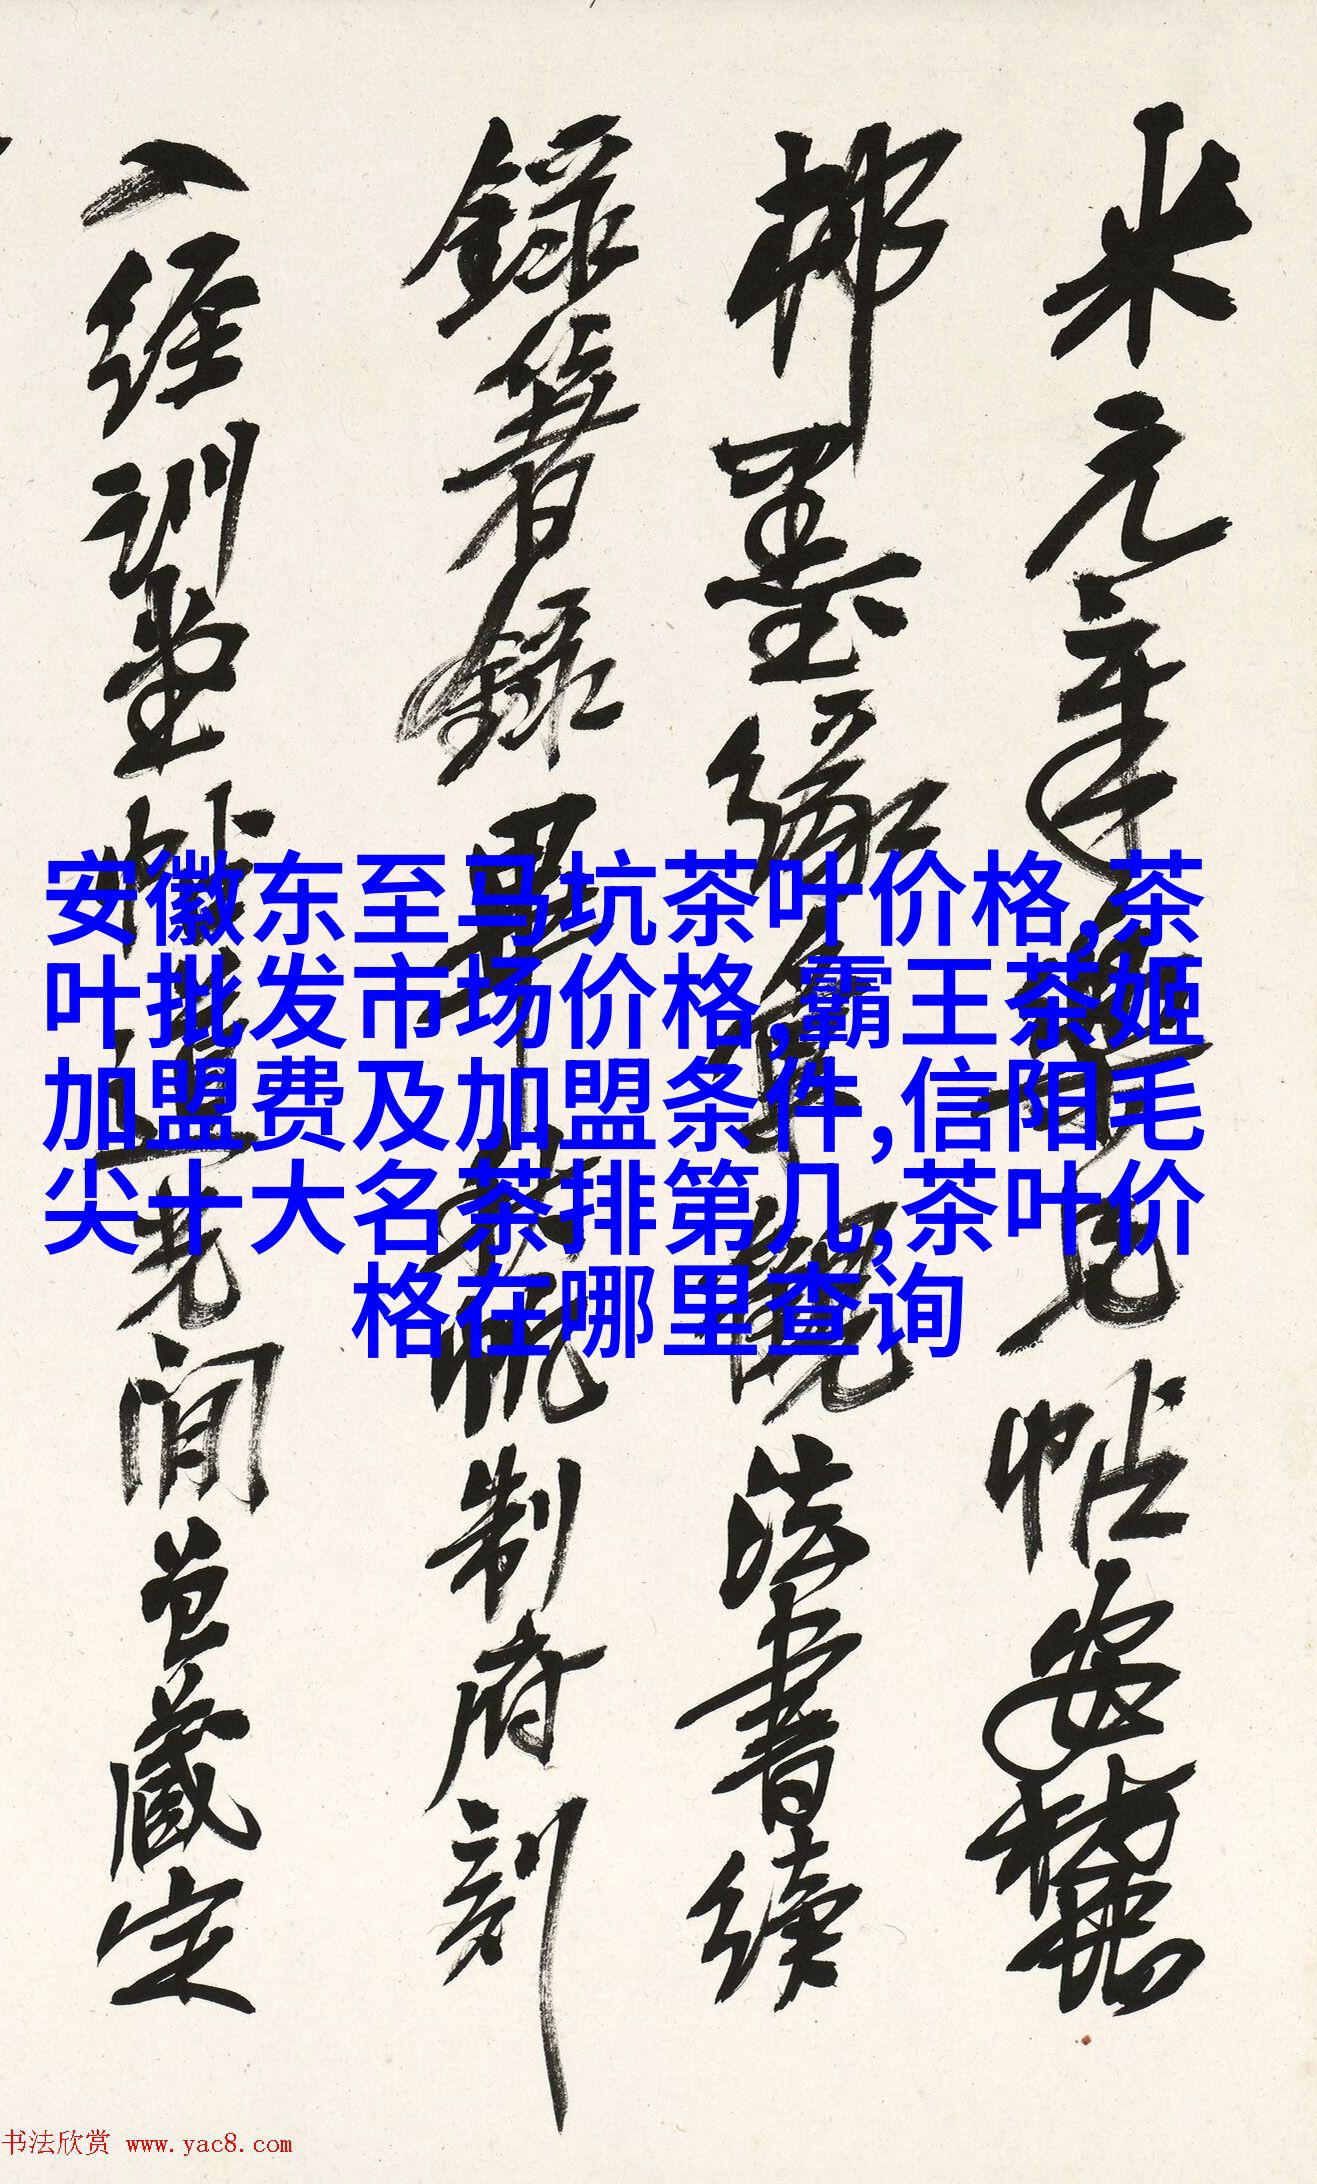 米元章岳見帖安麓
邨墨緣
法書續
錄著錄畢
制府刻
入經訓堂帖
间曾藏定
安徽东至马坑茶叶价格,茶
叶批发市场价格,霸王茶姬
加盟费及加盟条件,信阳毛
尖十大名茶排第几,茶叶价
格在哪里查询
书法欣赏 www.yac8.com